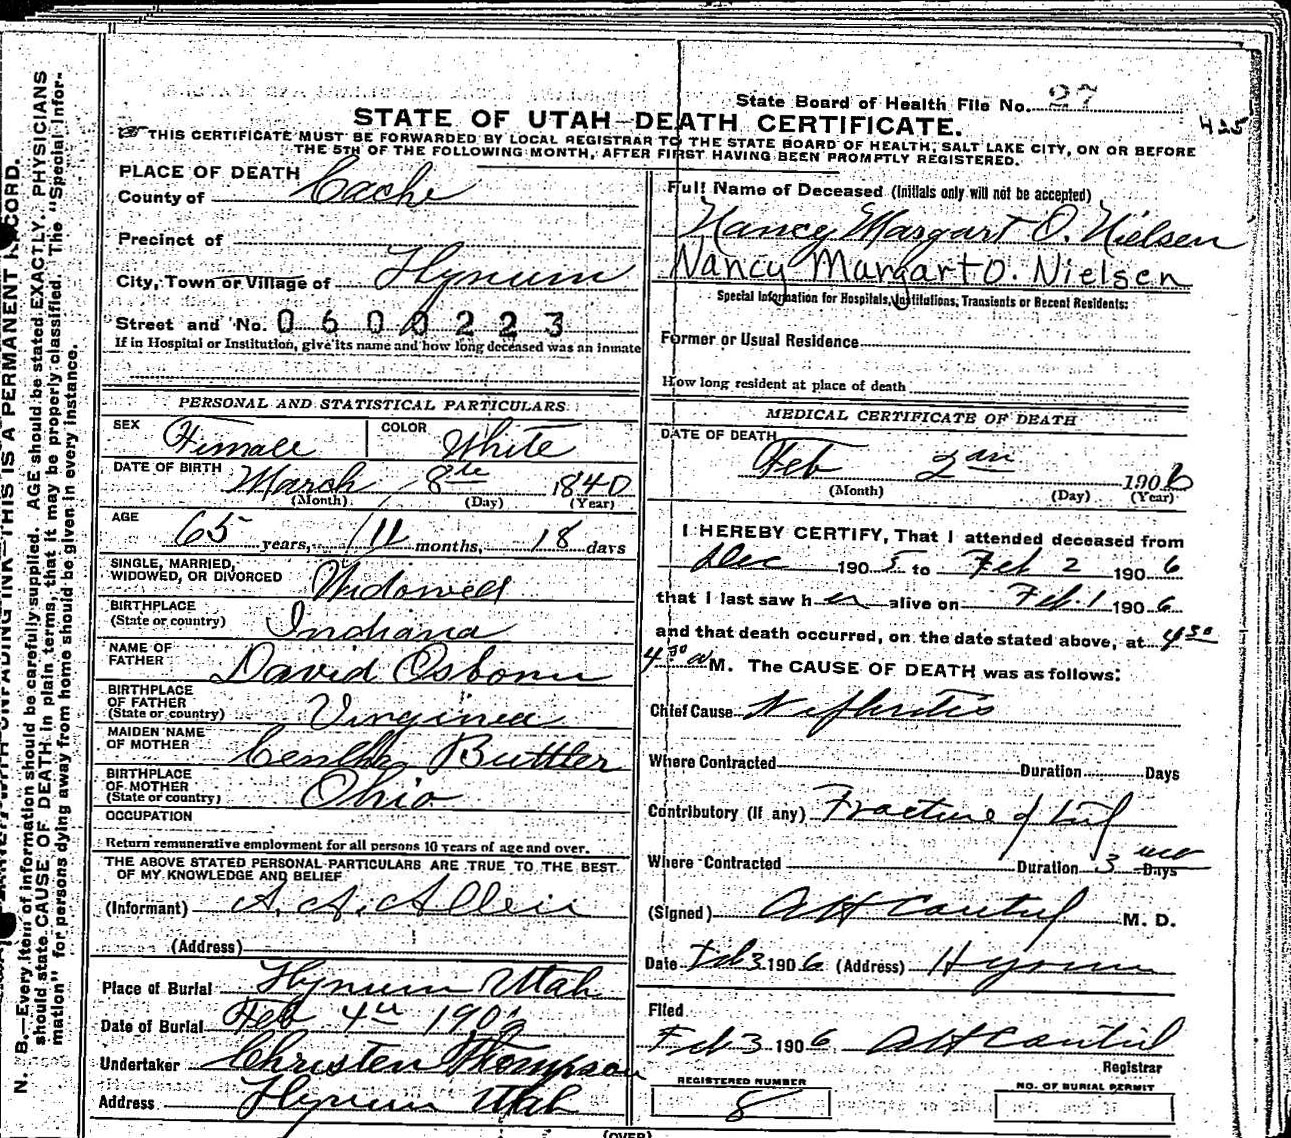 State Board of Health File No. 27
425
STATE OF UTAH—DEATH CERTIFICATE.
THIS CERTIFICATE MUST BE FORWARDED BY LOCAL REGISTRAR TO THE STATE BOARD OF HEALTH, SALT LAKE CITY, ON OR BEFORE
THE 5TH OF THE FOLLOWING MONTH, AFTER FIRST HAVING BEEN PROMPTLY REGISTERED.
PLACE OF DEATH
County of Cache
Precinct of
City, Town or Village of Hyrum
Street and No. 0600223
If in Hospital or Institution, give its name and how long deceased was an inmate
PERSONAL AND STATISTICAL PARTICULARS
SEX Female COLOR White
DATE OF BIRTH March 8th 1840
(Month) (Day) (Year)
AGE 65 years, 11 months, 18 days
SINGLE, MARRIED,
WIDOWED, OR DIVORCED Widowed
BIRTHPLACE
(State or country) Indiana
NAME OF
FATHER David Osborn
BIRTHPLACE
OF FATHER
(State or country) Virginia
MAIDEN NAME
OF MOTHER Buttler
BIRTHPLACE
OF MOTHER
(State or country) Ohio
OCCUPATION
Return remunerative employment for all persons 10 years of age and over.
THE ABOVE STATED PERSONAL PARTICULARS ARE TRUE TO THE BEST
OF MY KNOWLEDGE AND BELIEF
(Informant) A. A. Allen
(Address)
Place of Burial Hyrum Utah
Date of Burial Feb 4th 1906
Undertaker Christen Thompson
Address Hyrum Utah
Full Name of Deceased (Initials only will not be accepted)
Nancy Margart O. Nielsen
Nancy Margart O. Nielsen
Special Information for Hospitals, Institutions, Transients or Recent Residents:
Former or Usual Residence
How long resident at place of death
MEDICAL CERTIFICATE OF DEATH
DATE OF DEATH
Feb 2 1906
(Month) (Day) (Year)
I HEREBY CERTIFY, That I attended deceased from
Dec 1905 to Feb 2 1906
that I last saw her alive on Feb 1 1906
and that death occurred, on the date stated above, at 4 30
4 30 a M. The CAUSE OF DEATH was as follows:
Chief Cause Nefhritis
Where Contracted Duration Days
Contributory (if any) Fracture of
Where Contracted Duration 3 Days
(Signed) A H Cantril M. D.
Date Feb 3 1906 (Address) Hyrum
Filed
Feb 3 1906 A H Cantril
Registrar
REGISTERED NUMBER
8
NO. OF BURIAL PERMIT
(OVER)
N. B.—Every item of information should be carefully supplied. AGE should be stated EXACTLY. PHYSICIANS
should state CAUSE OF DEATH in plain terms, that it may be properly classified. The "Special Infor-
mation" for persons dying away from home should be given in every instance.
UNFADING INK—THIS IS A PERMANENT RECORD.